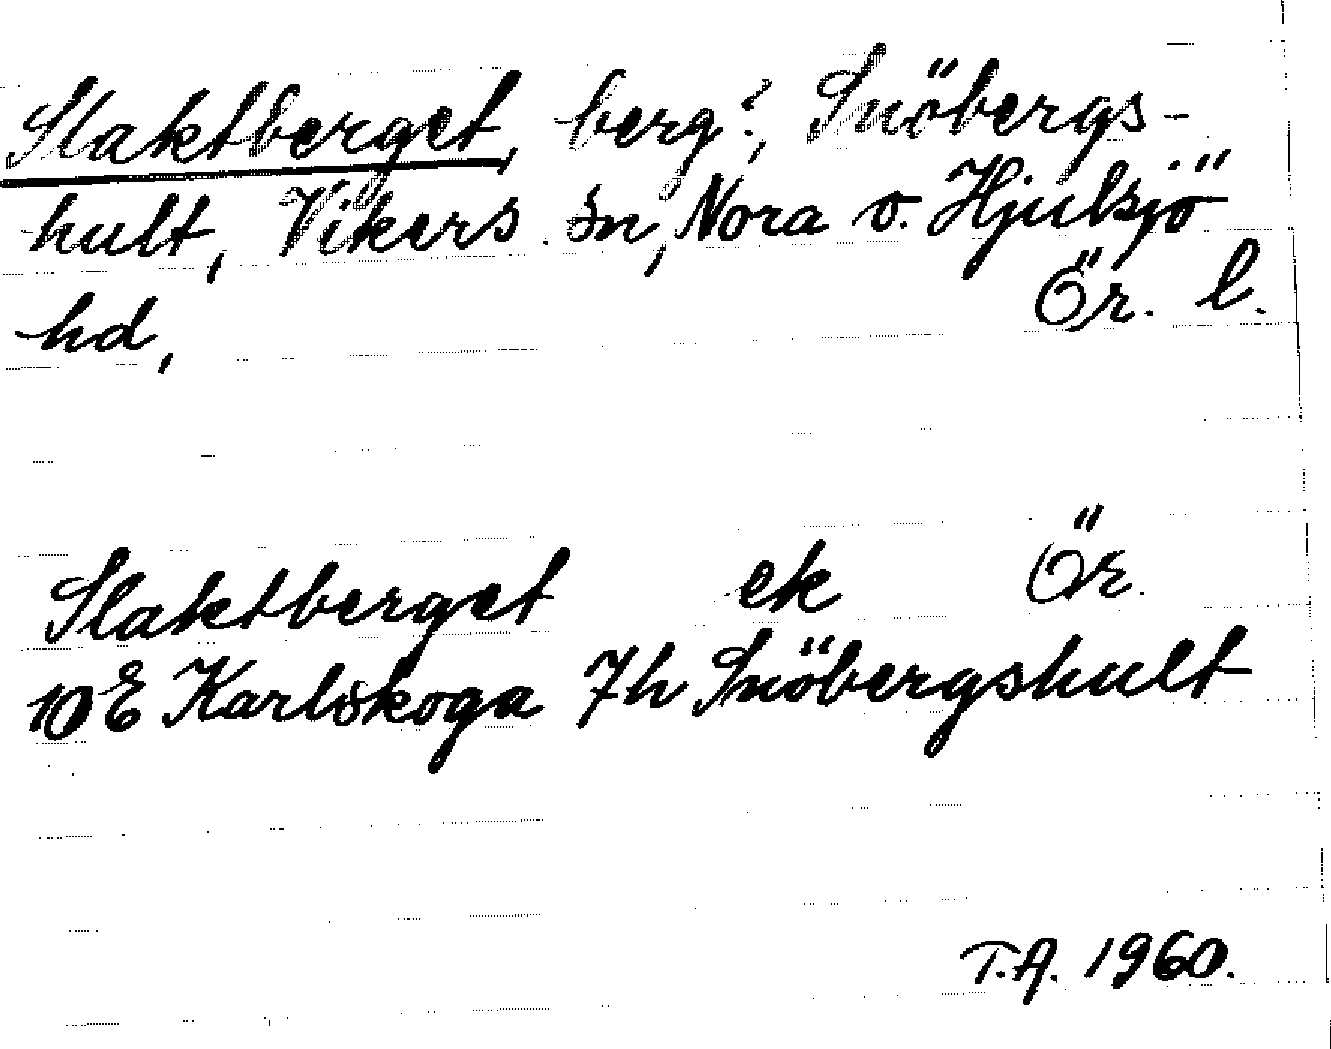 Slaktberget, berg?, Snöbergs-
hult, Vikers sn, Nora o. Hjulsjö
hd, Ör. l.
Slaktberget ek Ör.
10E Karlskoga 7h Snöbergshult
T.A. 1960.